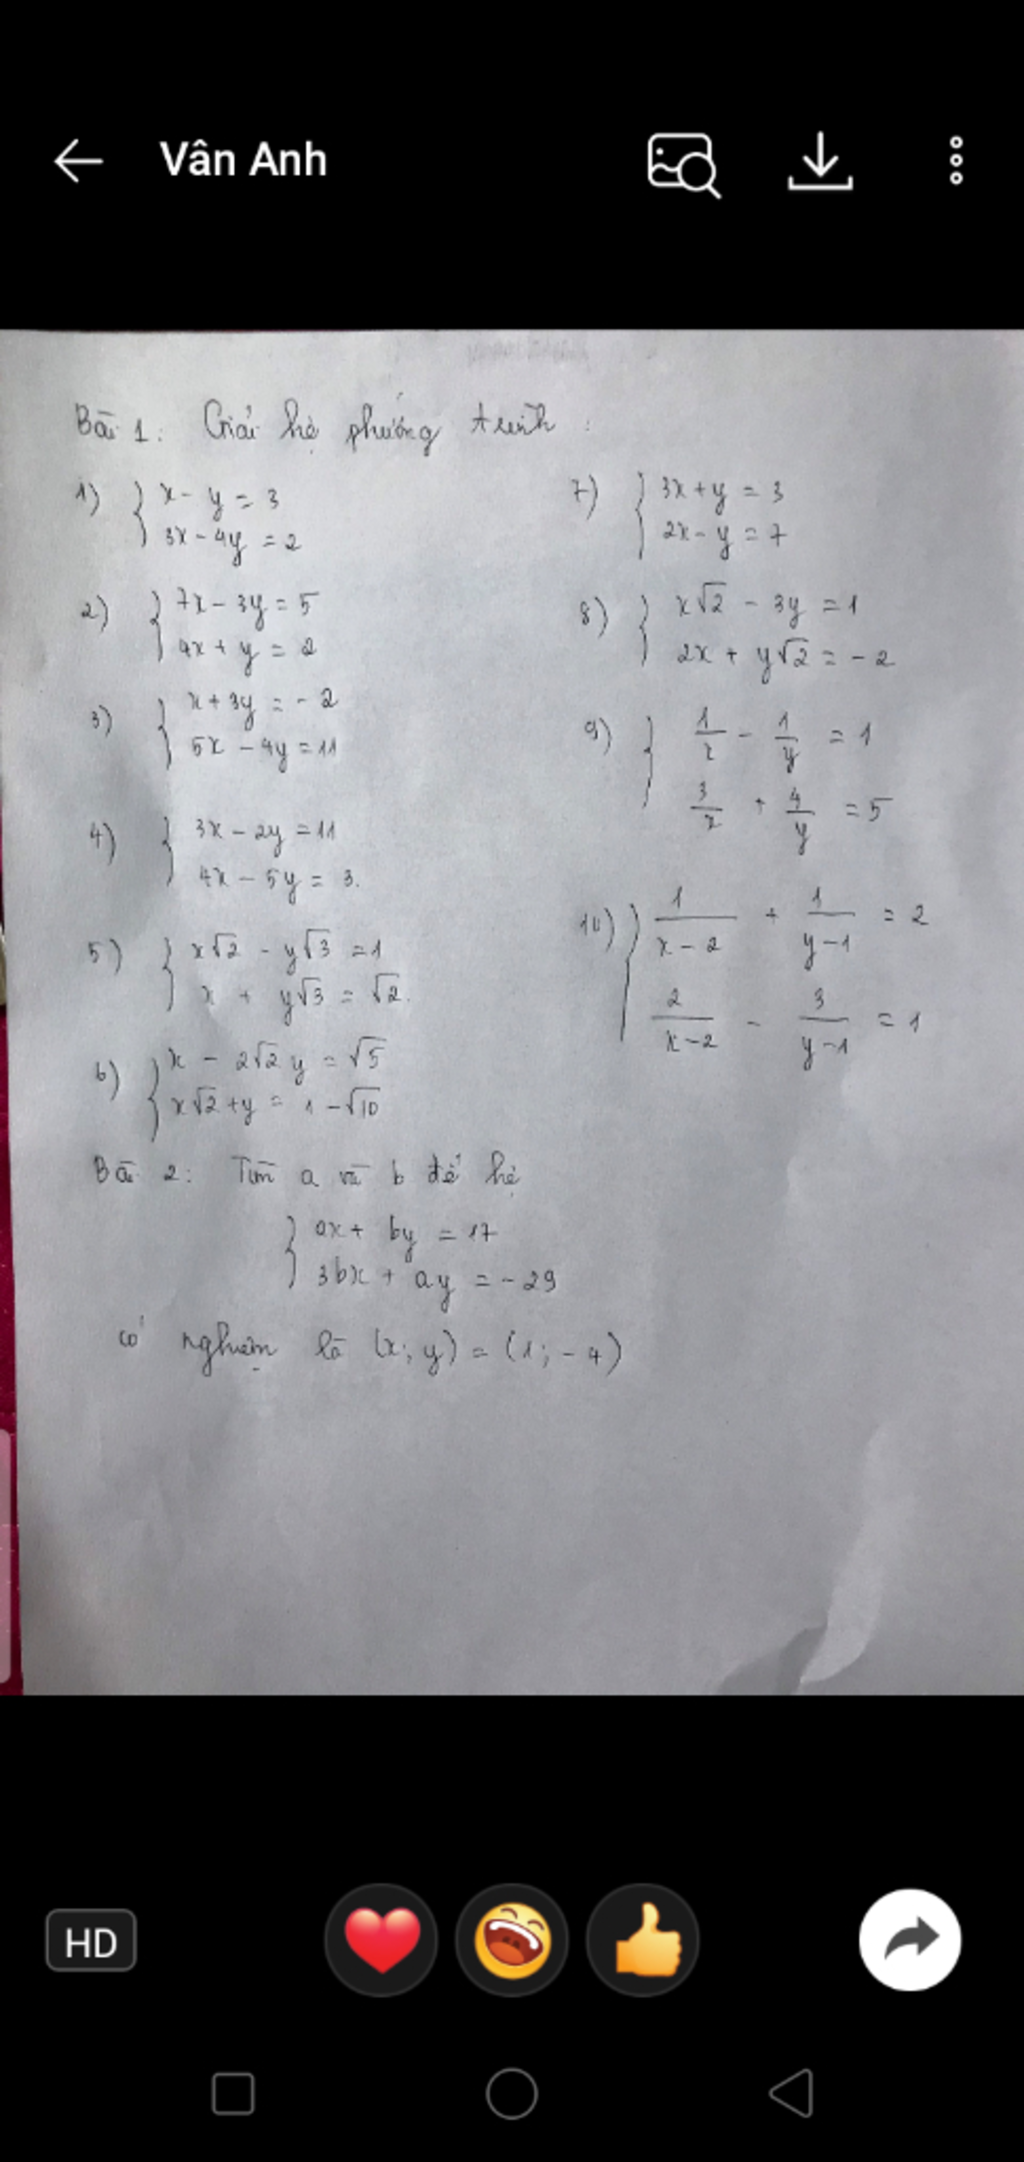 Vân Anh
Bài 1: Giải hệ phương trình:
1) { x - y = 3
3x - 4y = 2
2) { 7x - 3y = 5
4x + y = 2
3) { x + 3y = -2
5x - 4y = 11
4) { 3x - 2y = 11
4x - 5y = 3.
5) { x√2 - y√3 = 1
x + y√3 = √2.
6) { x - 2√2 y = √5
x√2 + y = 1 - √10
7) { 3x + y = 3
2x - y = 7
8) { x√2 - 3y = 1
2x + y√2 = -2
9) { 1/x - 1/y = 1
3/x + 4/y = 5
10) { 1/(x-2) + 1/(y-1) = 2
2/(x-2) - 3/(y-1) = 1
Bài 2: Tìm a và b để hệ
{ ax + by = 17
3bx + ay = -29
có nghiệm là (x; y) = (1; -4)
HD